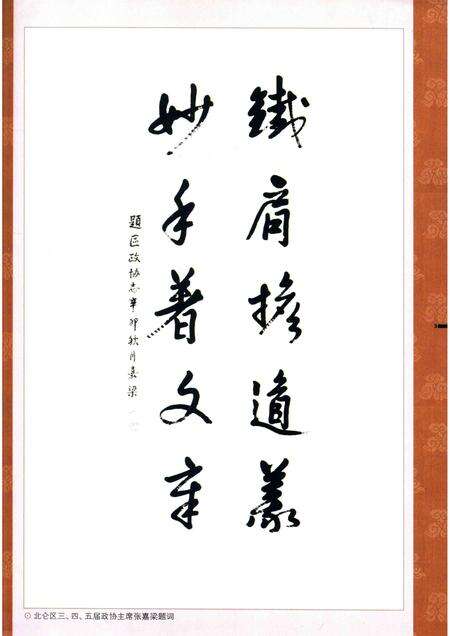 鐵肩擔道義
妙手着文章
題区政协志辛卯秋月嘉梁
⊙ 北仑区三、四、五届政协主席张嘉梁题词